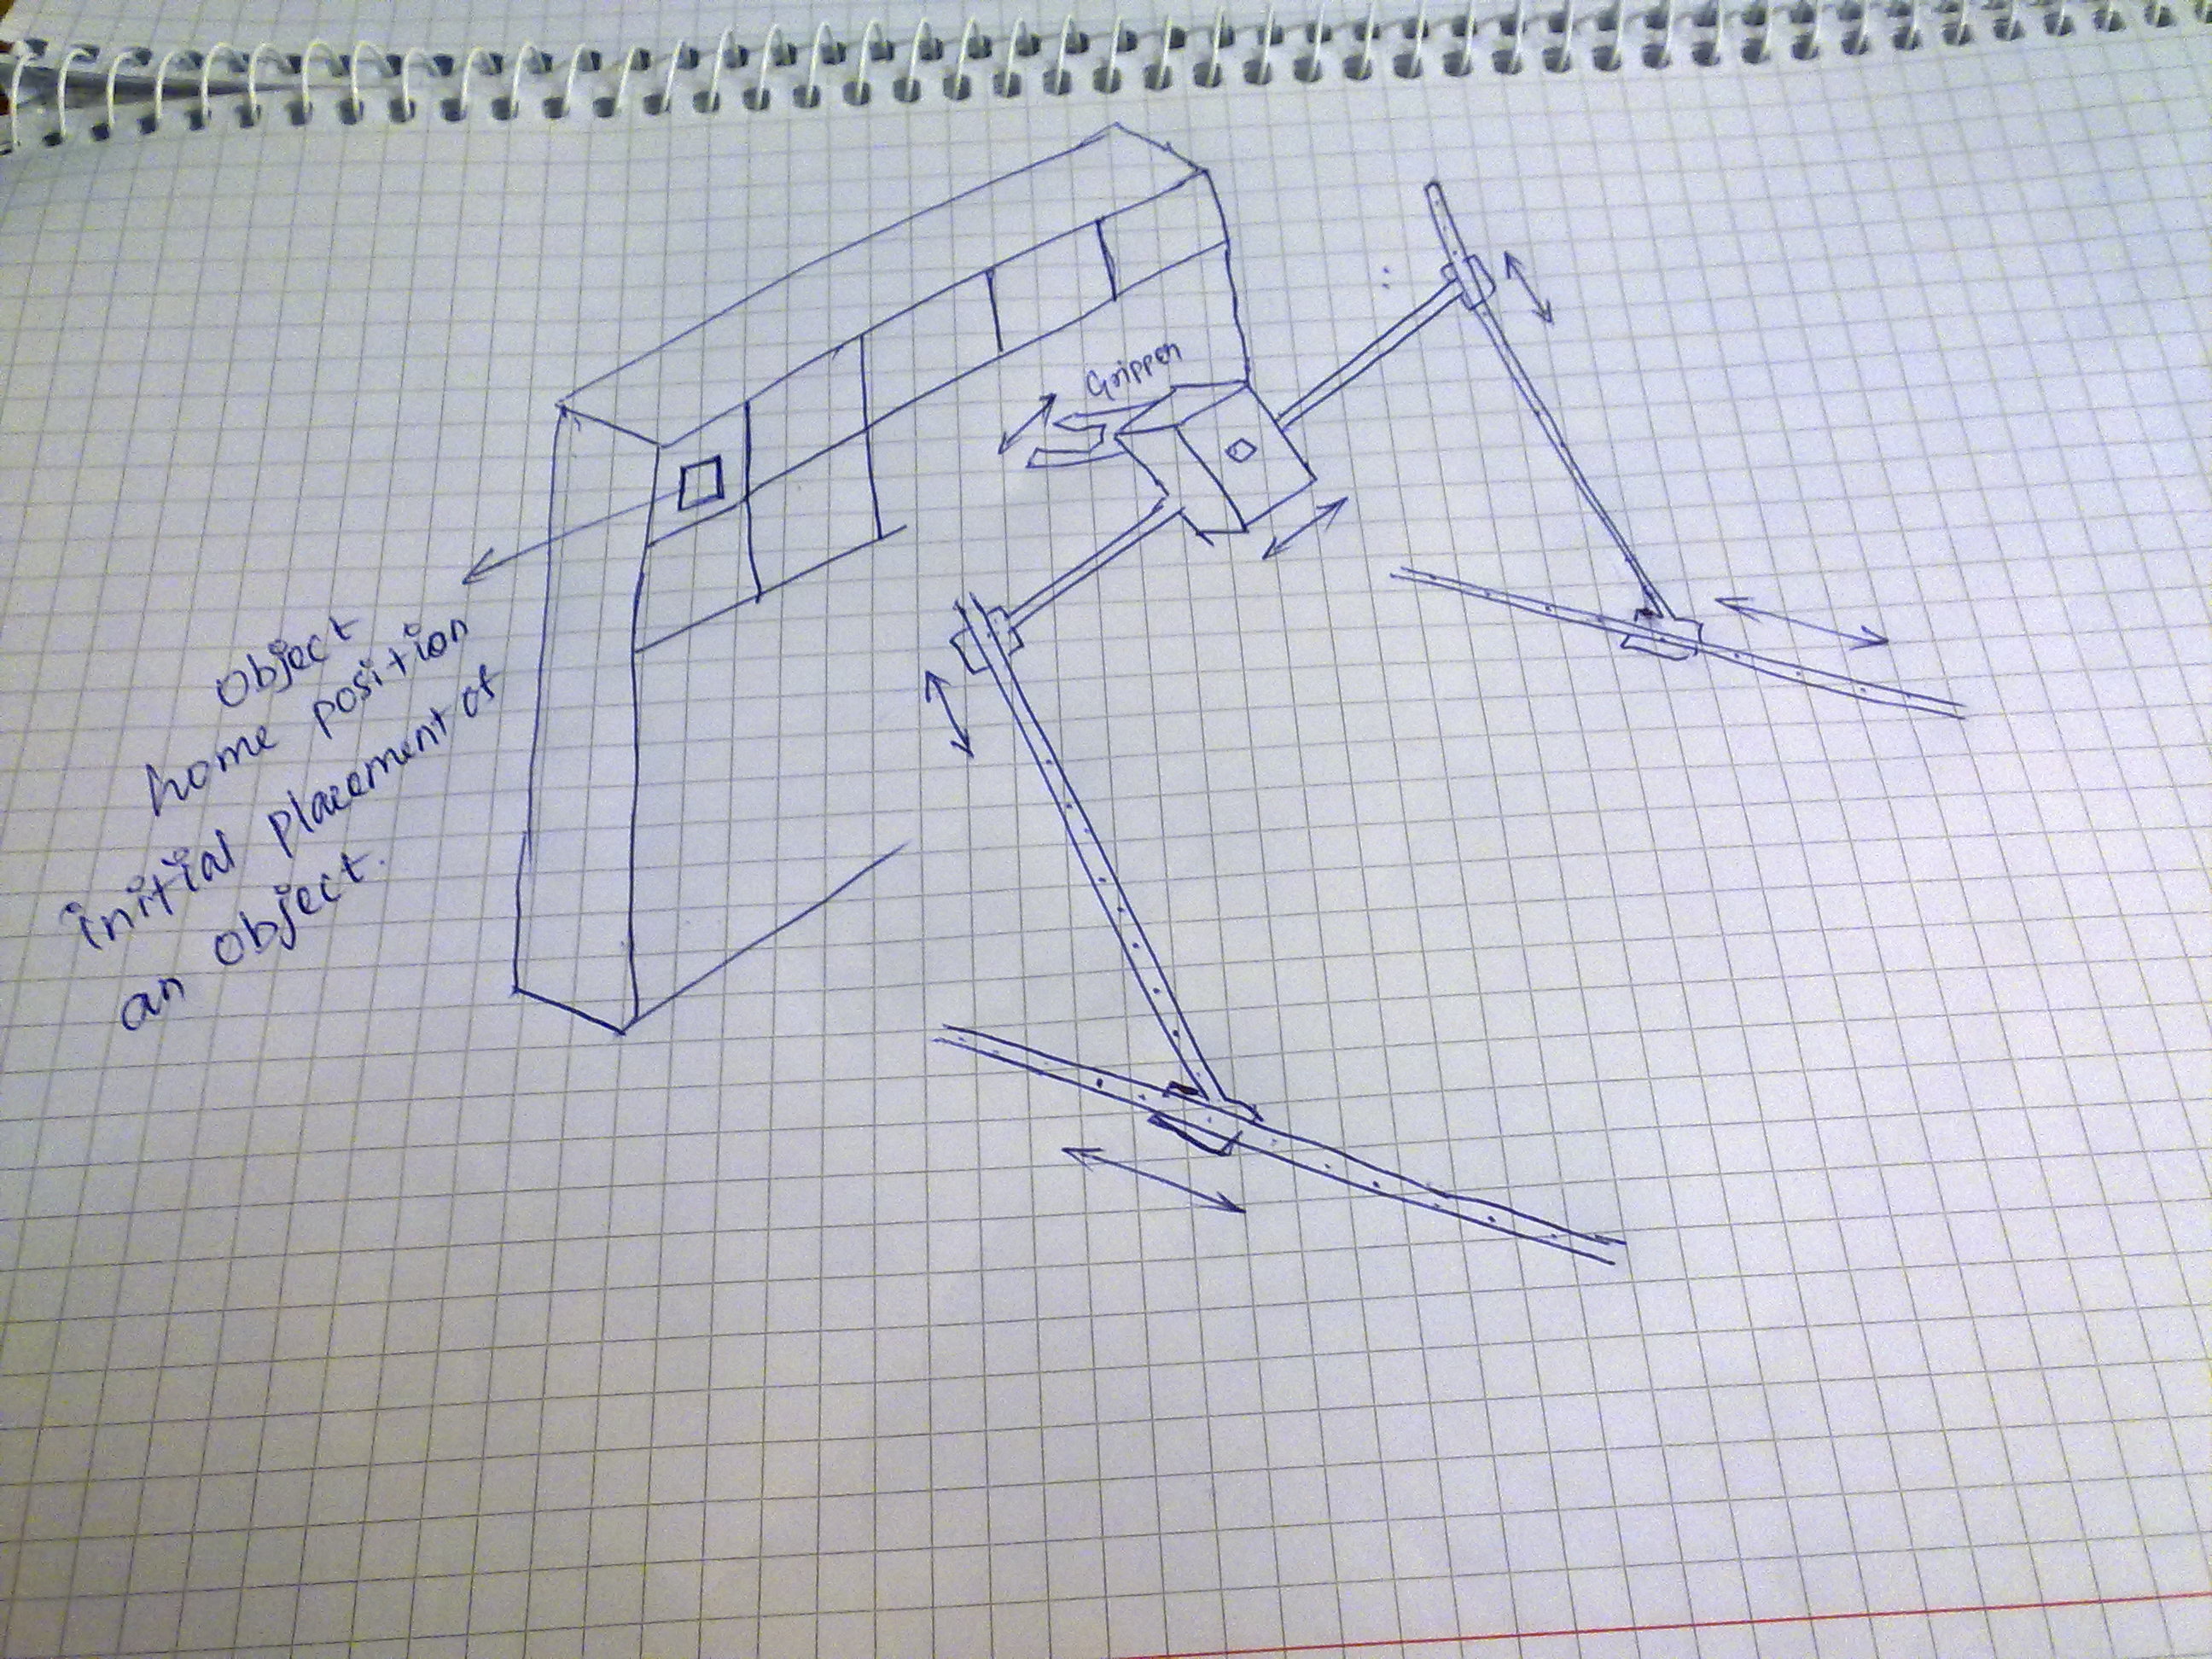 Gripper
object
home position
initial placement of
an object.